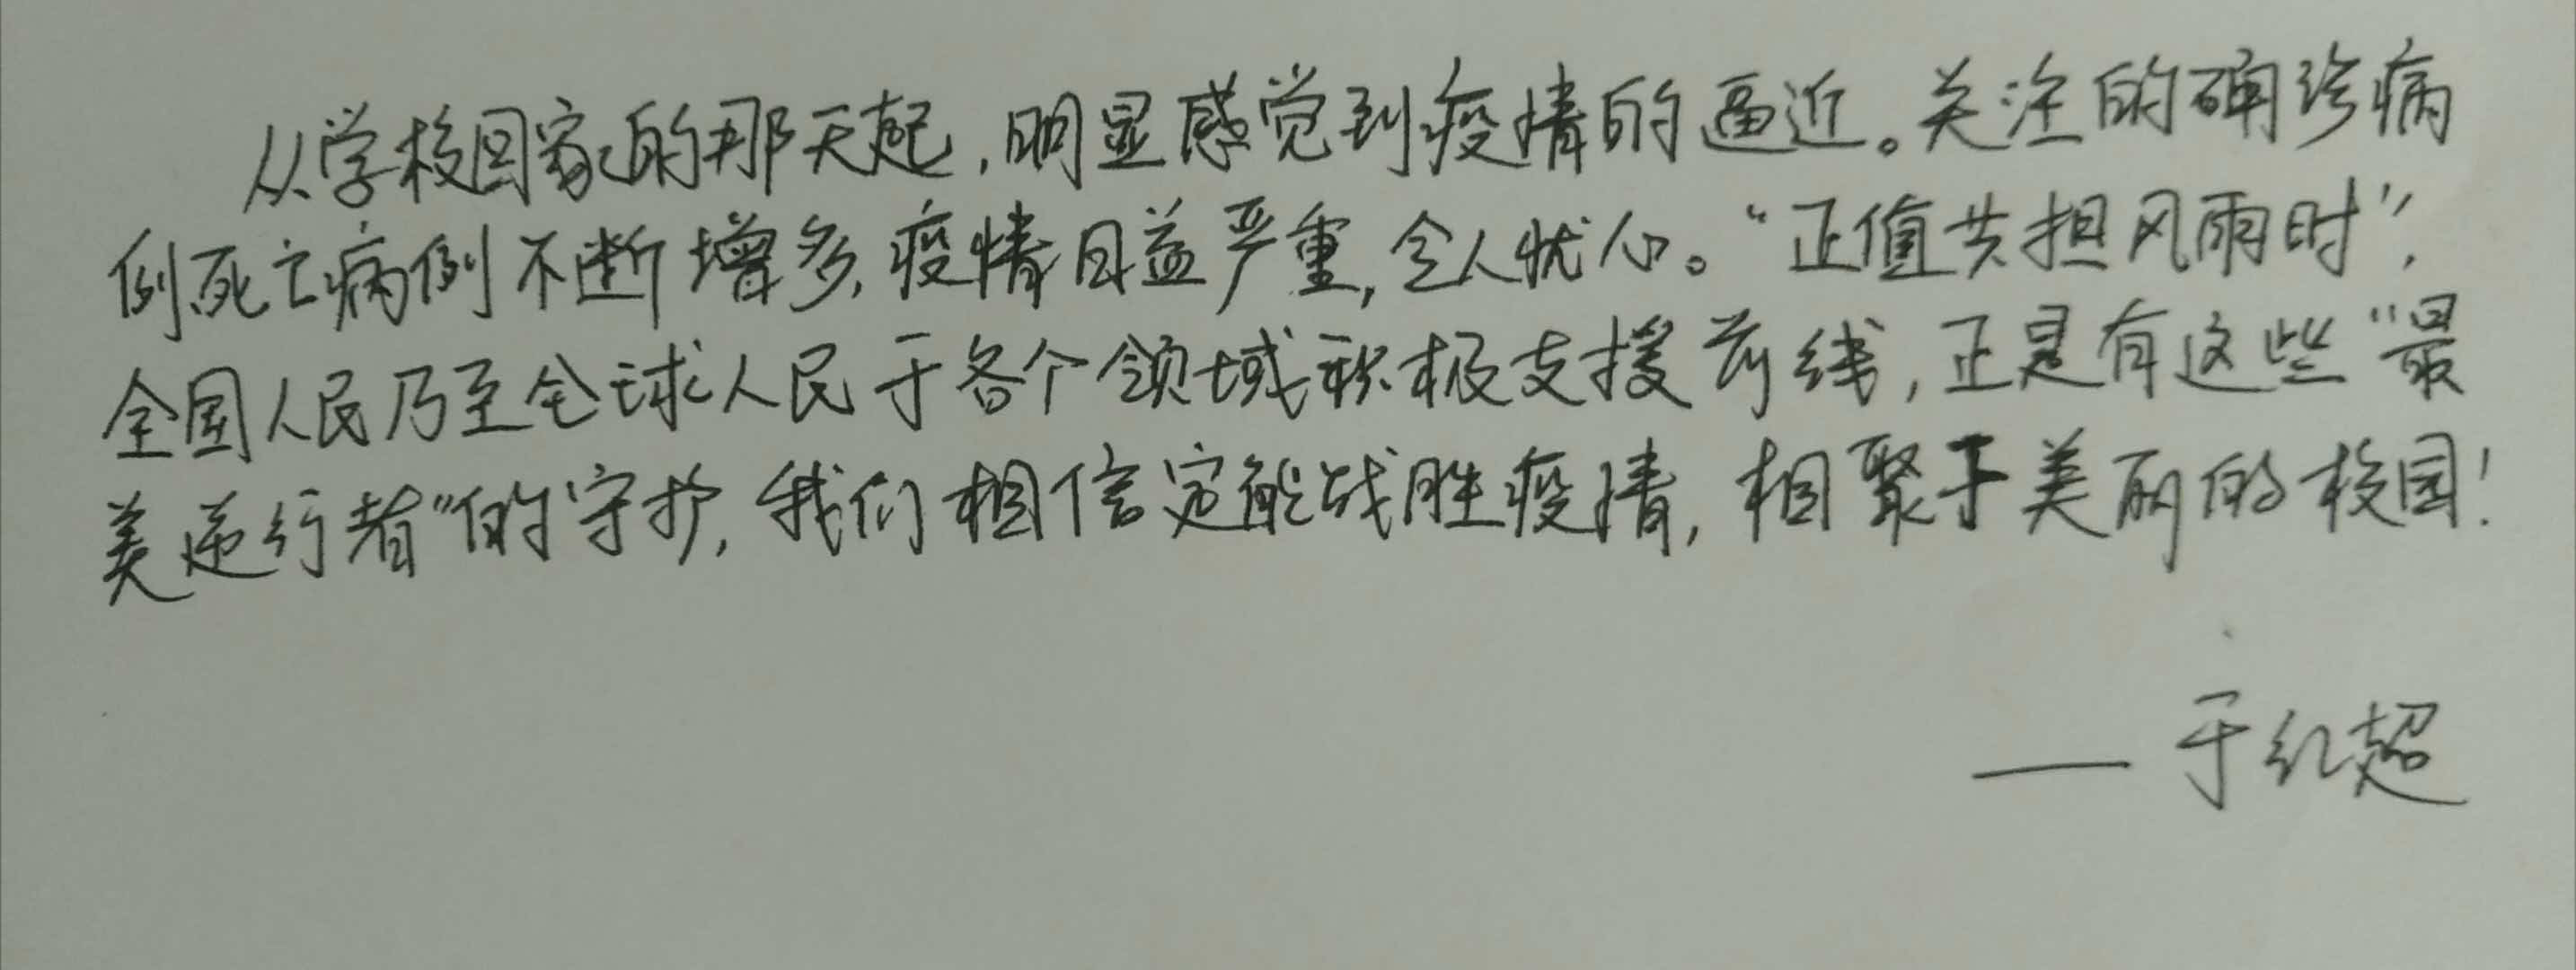 从学校回家的那天起,明显感觉到疫情的逼近。关注的确诊病
例死亡病例不断增多,疫情日益严重,令人忧心。“正值共担风雨时”,
全国人民乃至全球人民于各个领域积极支援前线,正是有这些“最
美逆行者”的守护,我们相信定能战胜疫情,相聚于美丽的校园!
——于红超